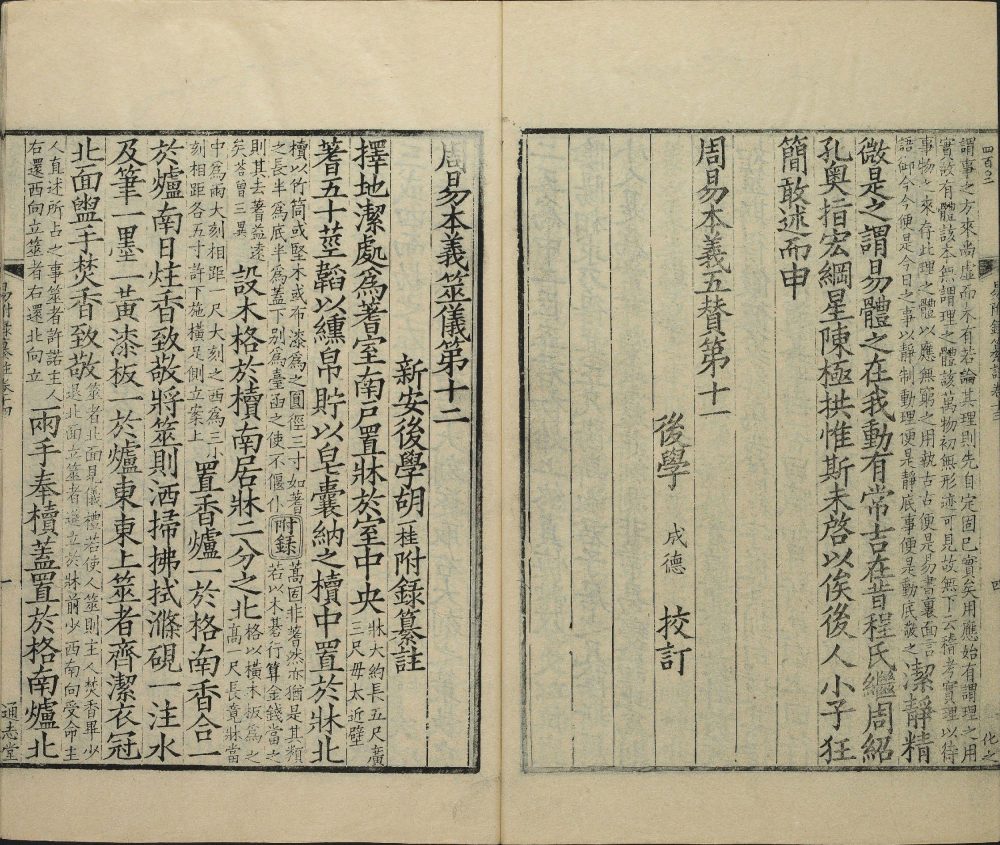 四百二
四
化之
謂事之方來尚虛而未有若論其理則先自定固已實矣用應始有謂理之用
實該有體該本無謂理之體該萬物初無形迹可見故無下云稽考實理以待
事物之來存此理之體以應無窮之用執古古便是易書裏面言
語御今今便是今日之事以靜制動理便是靜底事便是動底
潔靜精
微是之謂易體之在我動有常吉在昔程氏繼周紹
孔奧指宏綱星陳極拱惟斯未啓以俟後人小子狂
簡敢述而申
周易本義五贊第十一
後學 成德 校訂
周易本義筮儀第十二
新安後學胡一桂附錄纂註
擇地潔處爲蓍室南戶置牀於室中央
牀大約長五尺廣
三尺毋太近壁
蓍五十莖韜以纁帛貯以皂囊納之櫝中置於牀北
櫝以竹筒或堅木或布漆爲之圓徑三寸如蓍
之長半爲底半爲蓋下別爲臺函之使不偃仆
附錄
蒿固非蓍然亦猶是其類
若以木棊行算金錢當之
則其去蓍益遠
矣答曾三異
設木格於櫝南居牀二分之北
格以橫木板爲之
高一尺長竟牀當
中爲兩大刻相距一尺大刻之西爲三小
刻相距各五寸許下施橫足側立案上
置香爐一於格南香合一
於爐南日炷香致敬將筮則洒掃拂拭滌硯一注水
及筆一墨一黃漆板一於爐東東上筮者齊潔衣冠
北面盥手焚香致敬
筮者北面見儀禮若使人筮則主人焚香畢少
退北面立筮者進立於牀前少西南向受命主
人直述所占之事筮者許諾主人
右還西向立筮者右還北向立
兩手奉櫝蓋置於格南爐北
易附錄纂註卷十四
一
通志堂